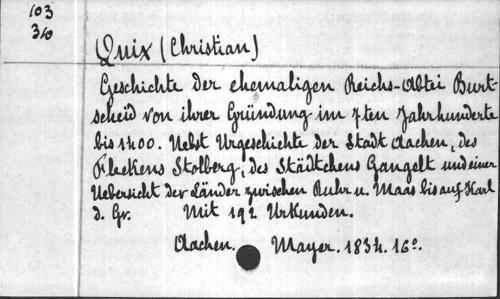 103
30
Quix (Christian)
Geschichte der ehemaligen Reichs-Abtei Burt-
scheid von ihrer Gründung im 7ten Jahrhunderte
bis 1400. Nebst Urgeschichte der Stadt Aachen, des
Fleckens Stolberg, des Städtchens Gangelt und einer
Uebersicht der Länder zwischen Ruhr u. Maas bis auf Karl
d. Gr. Mit 192 Urkunden.
Aachen. Mayer. 1834. 16°.